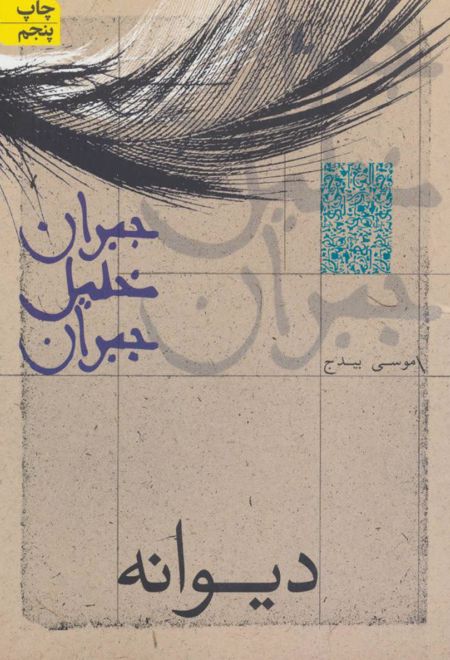 چاپ
پنجم
جبران
خلیل
جبران
خلیل
جبران
موسی بیدج
دیوانه